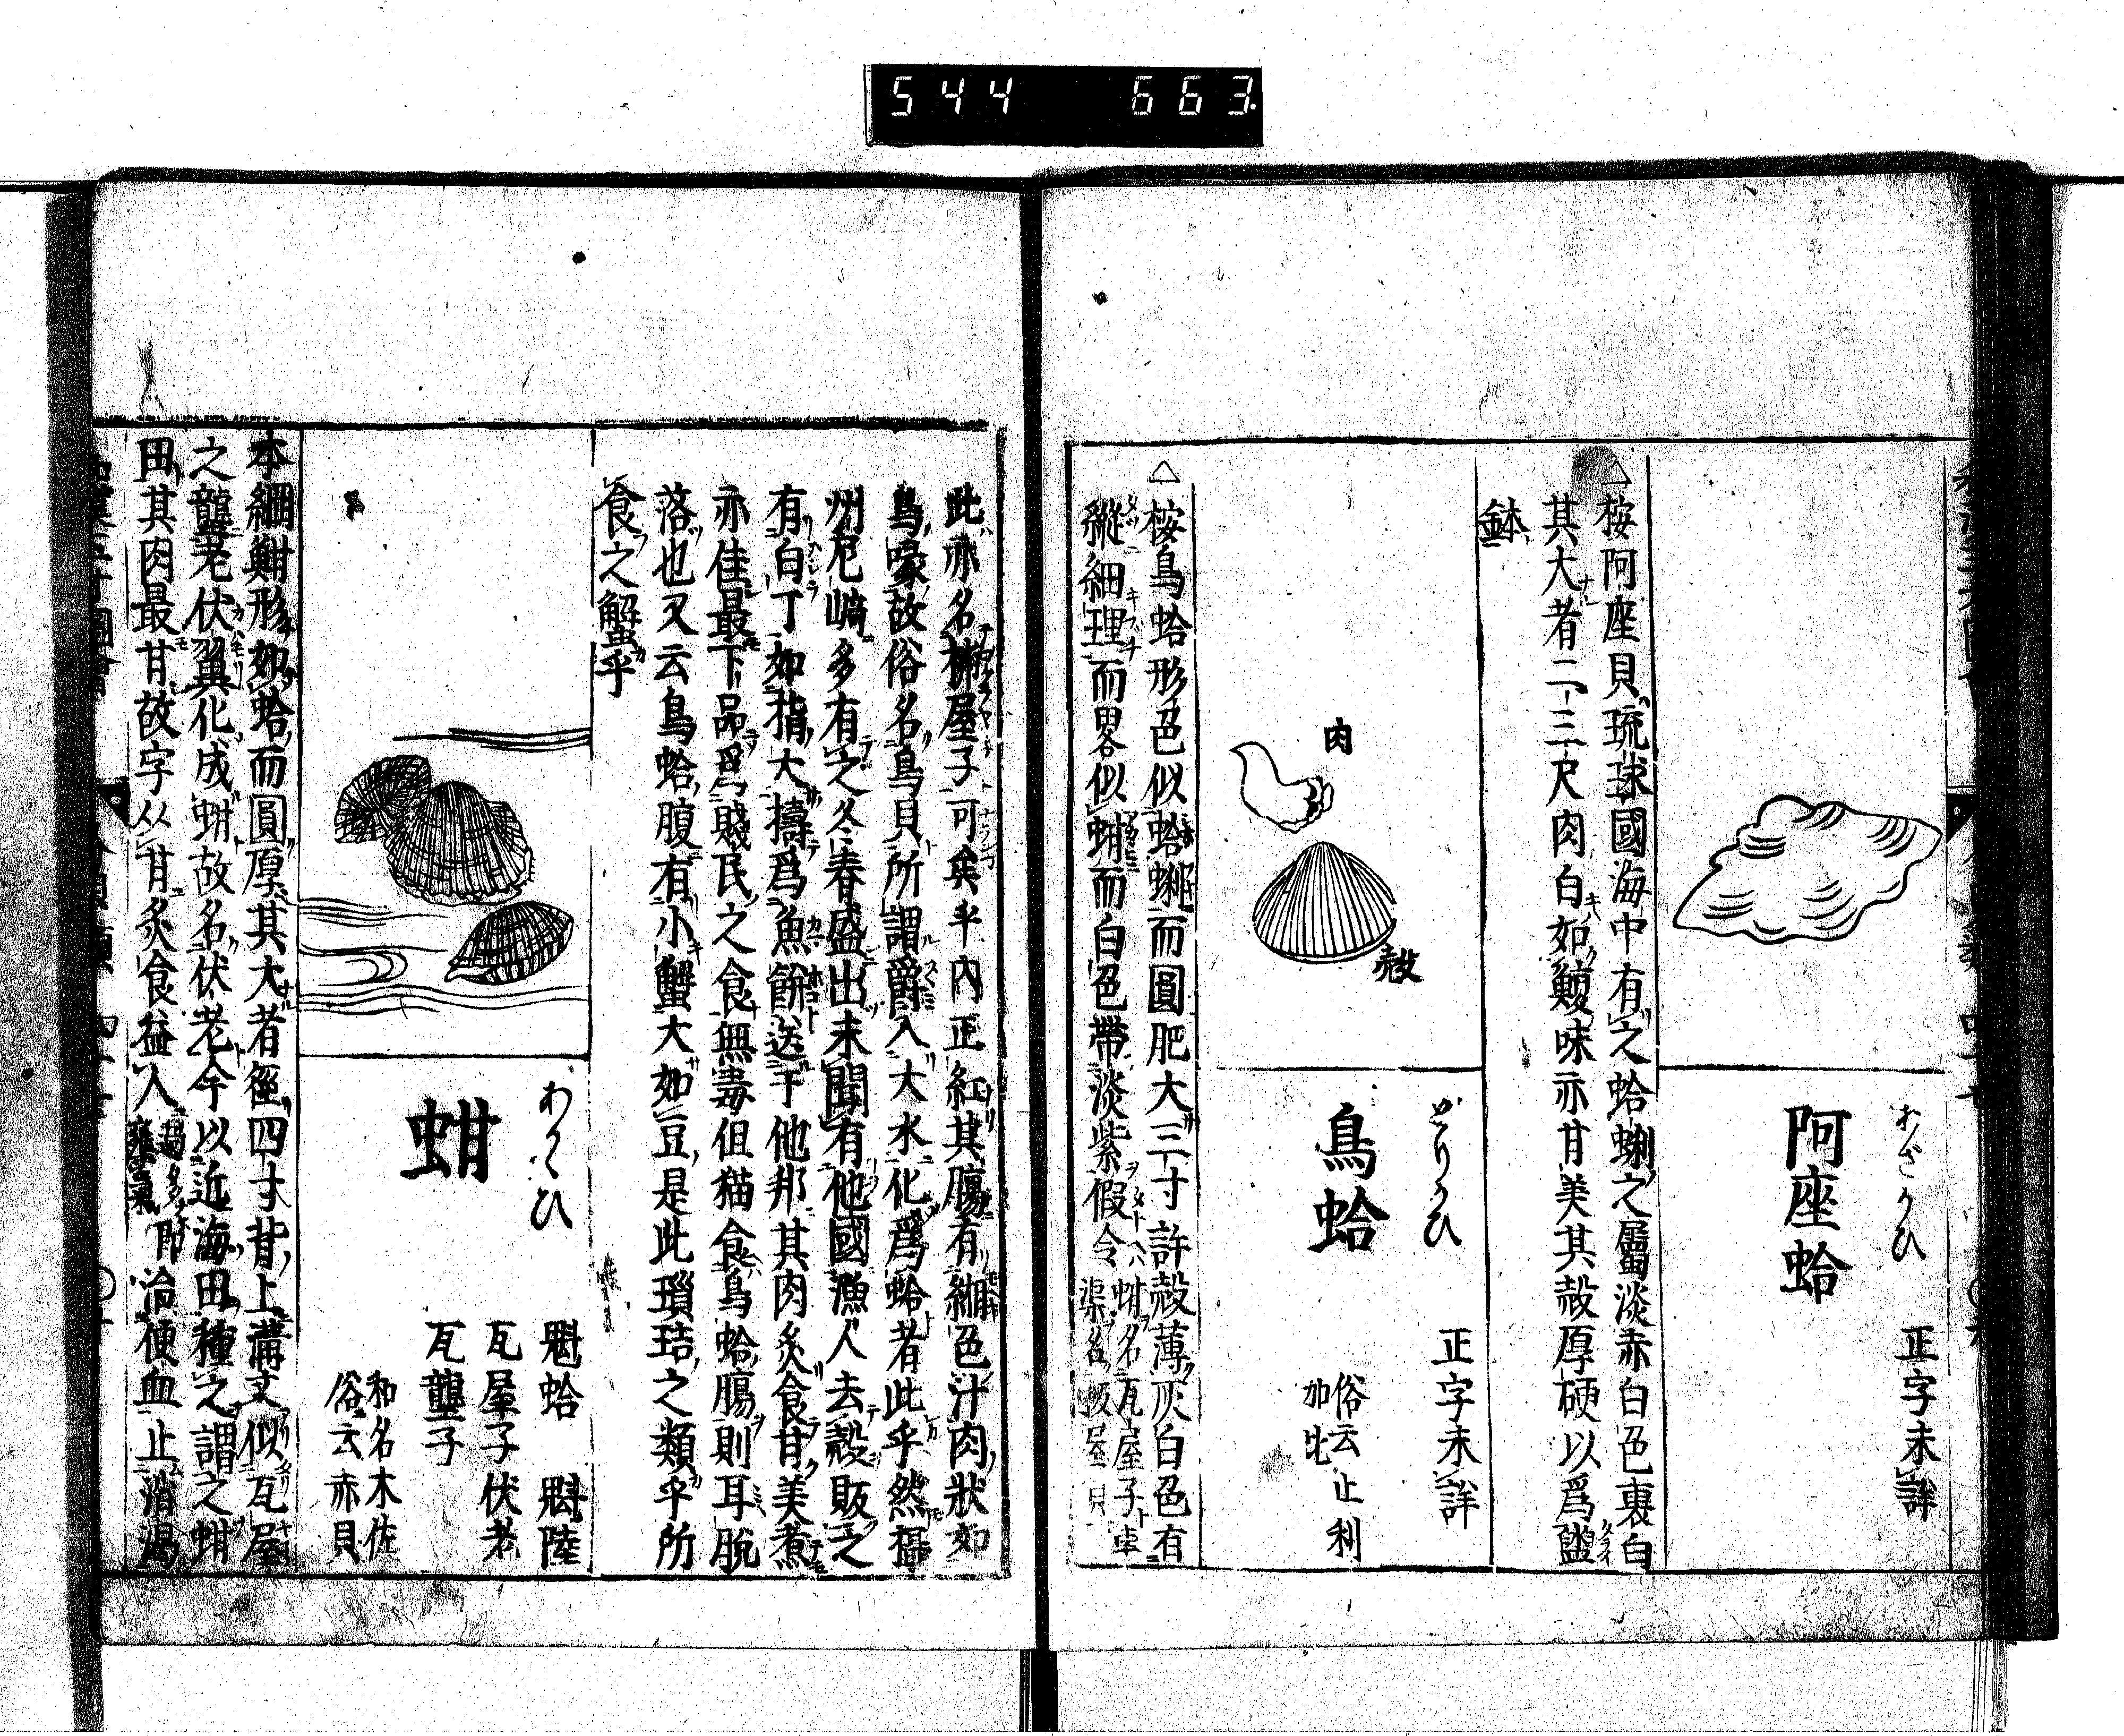 544 663
あざかひ
阿座蛤
正字未詳
△
桉阿座貝琉球國海中有之蛤蜊之屬淡赤白色裏白
其大者二三尺肉白如鰒味亦甘美其殻厚硬以爲盥
鉢
肉
殻
とりかひ
鳥蛤
正字未詳
俗云止利
加比
△
桉鳥蛤形色似蛤蜊而圓肥大三寸許殻薄灰白色有
縱細理而畧似蚶而白色帶淡紫假令
蚶名瓦屋子車
渠名板屋貝
此亦名栁屋子可矣乎内正紅其膓有緅色汁肉狀如
鳥喙故俗名鳥貝所謂爵入大水化爲蛤者此乎然攝
州尼﨑多有之冬春盛出未聞有他國漁人去殻販之
有白丁如指大擣爲魚餅送于他邦其肉炙食甘美煮
亦佳最下品爲賤民之食無毒但猫食鳥蛤膓則耳脫
落也又云鳥蛤腹有小蟹大如豆是此璅蛣之類乎所
食之蟹乎
わかひ
蚶
魁蛤 魁陸
瓦屋子伏老
瓦壟子
和名木佐
俗云赤貝
本綱魽形如蛤而圓厚其大者徑四寸背上溝文似瓦屋
之壟老伏翼化成蚶故名伏老今以近海田種之謂之蚶
田其肉最甘故字从甘炙食益人
過多即
壅氣
治便血止消渴